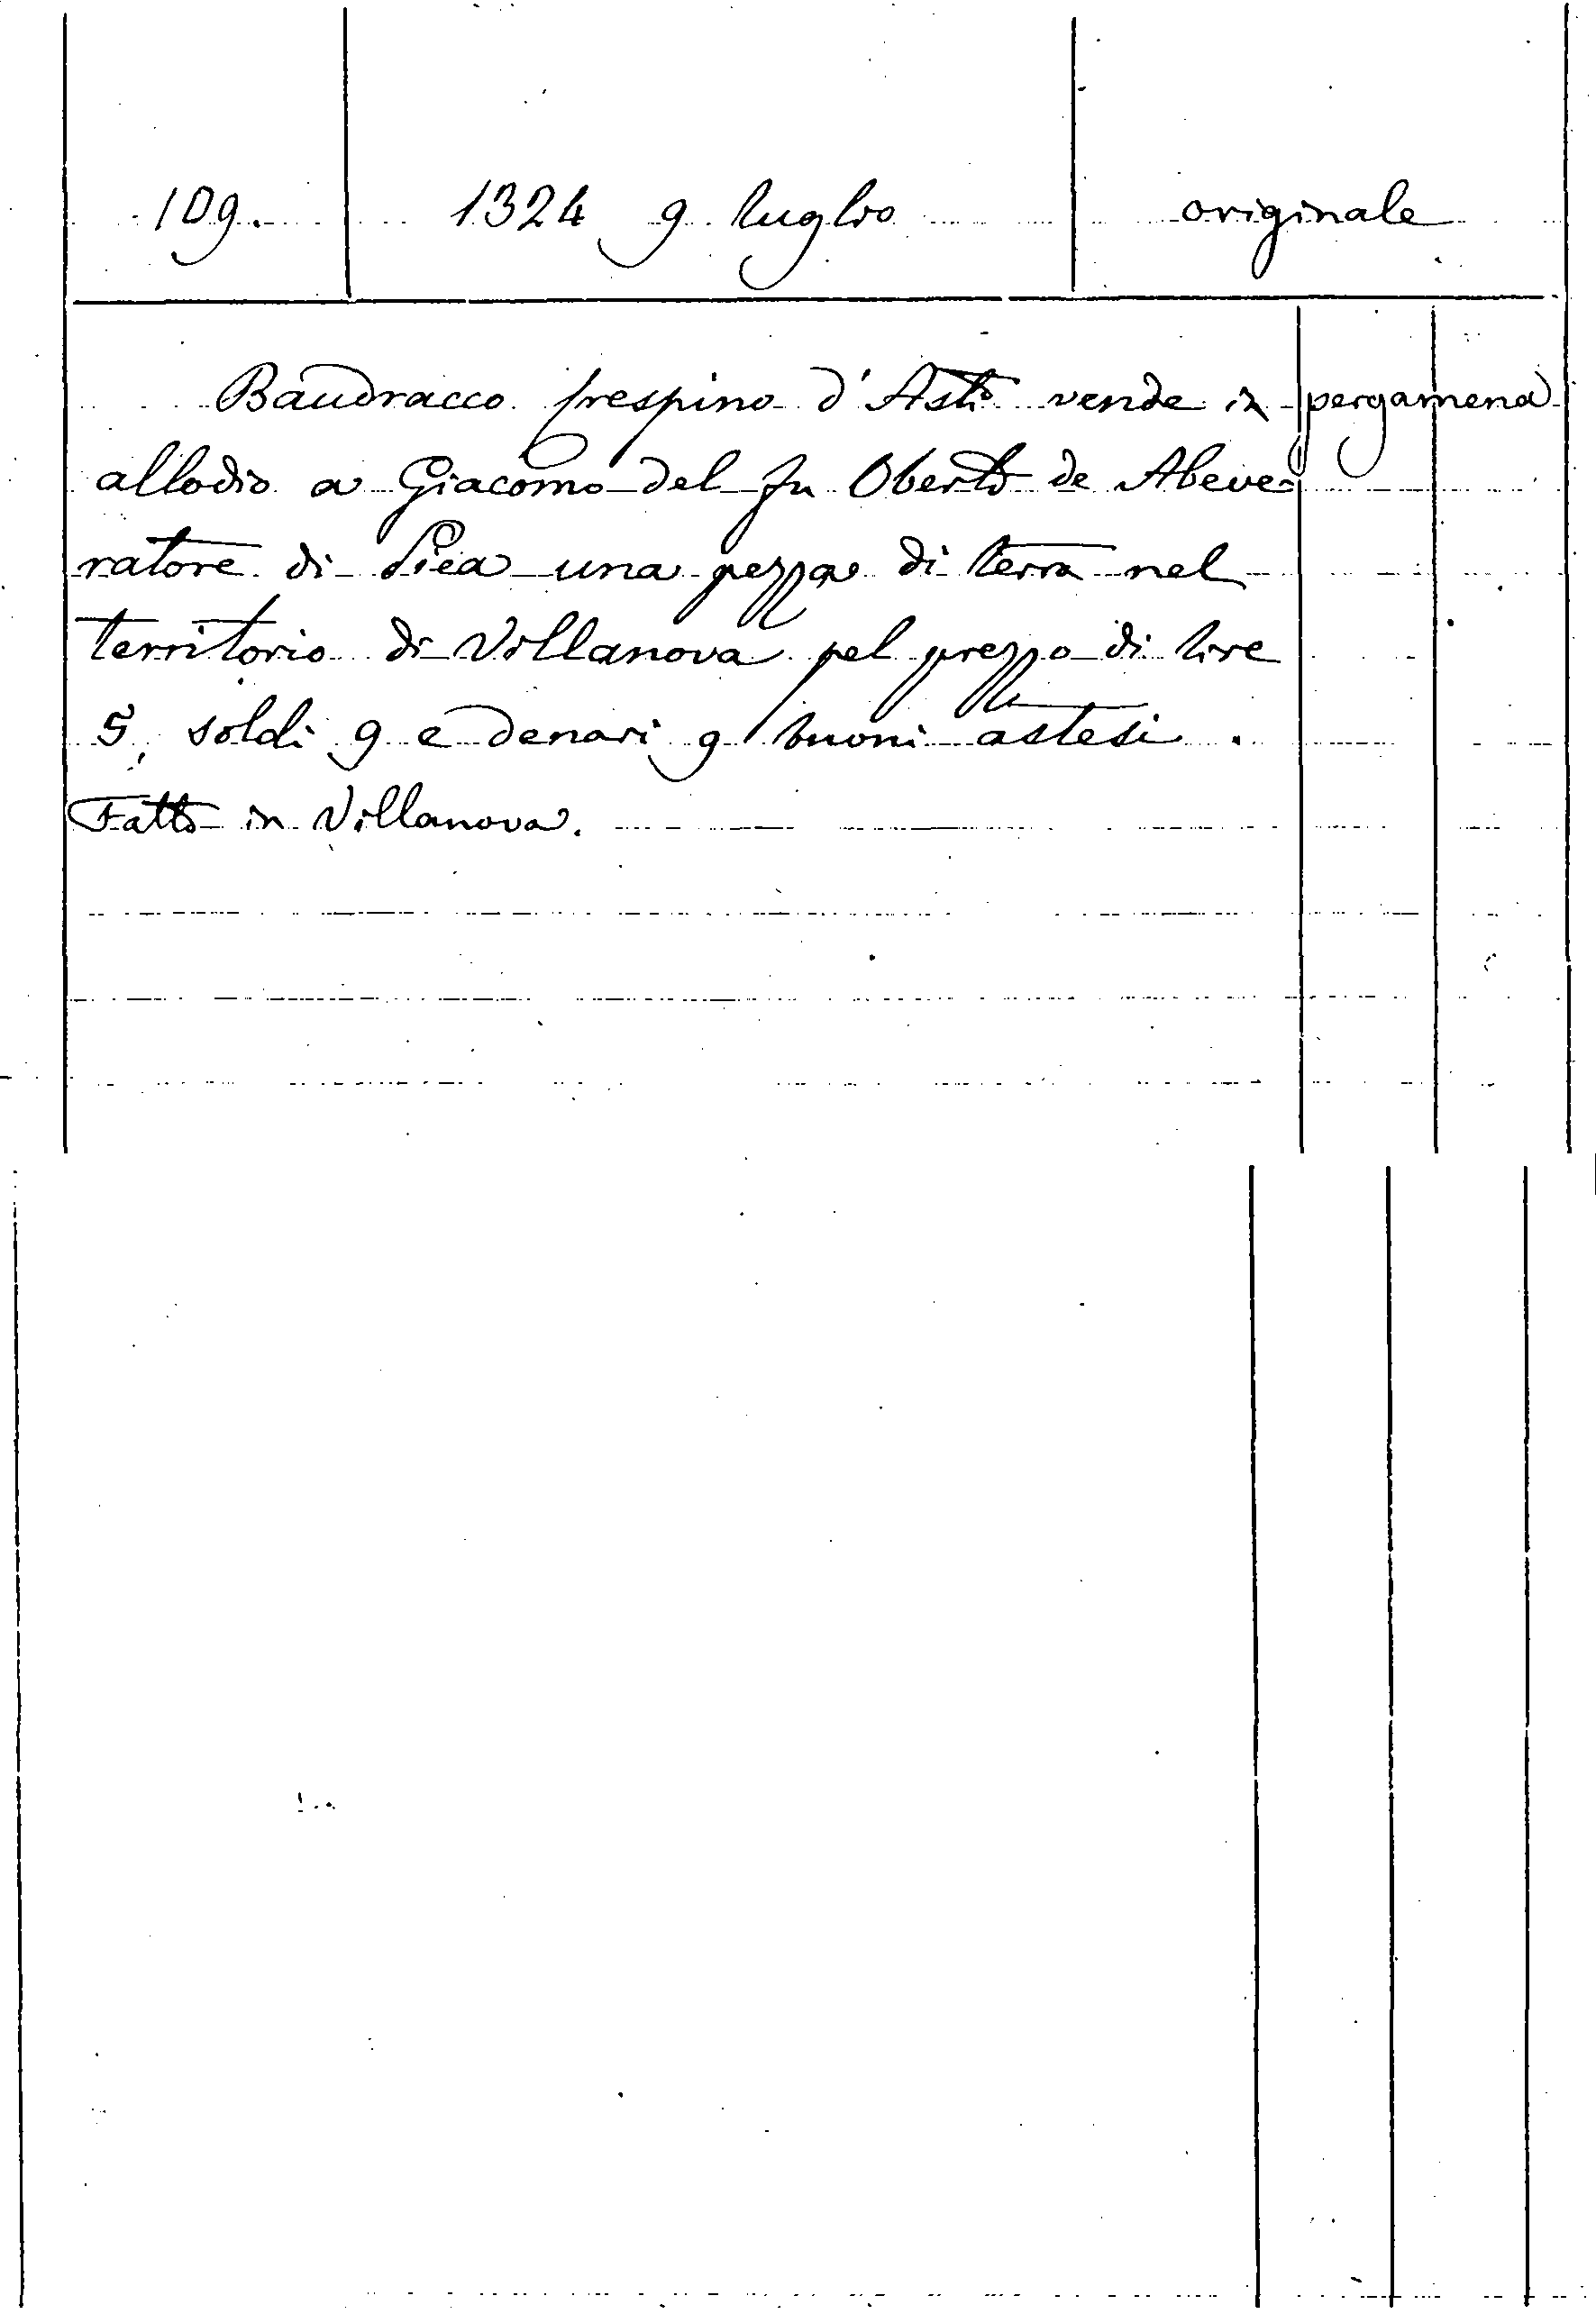 109. 1324 9 luglio originale
Baudracco Crespino d'Asti vende in pergamena
allodio a Giacomo del fu Oberto de Abeve-
ratore di Piea una pezza di terra nel
territorio di Villanova pel prezzo di lire
5, soldi 9 e denari 9 buoni astesi.
Fatto in Villanova.